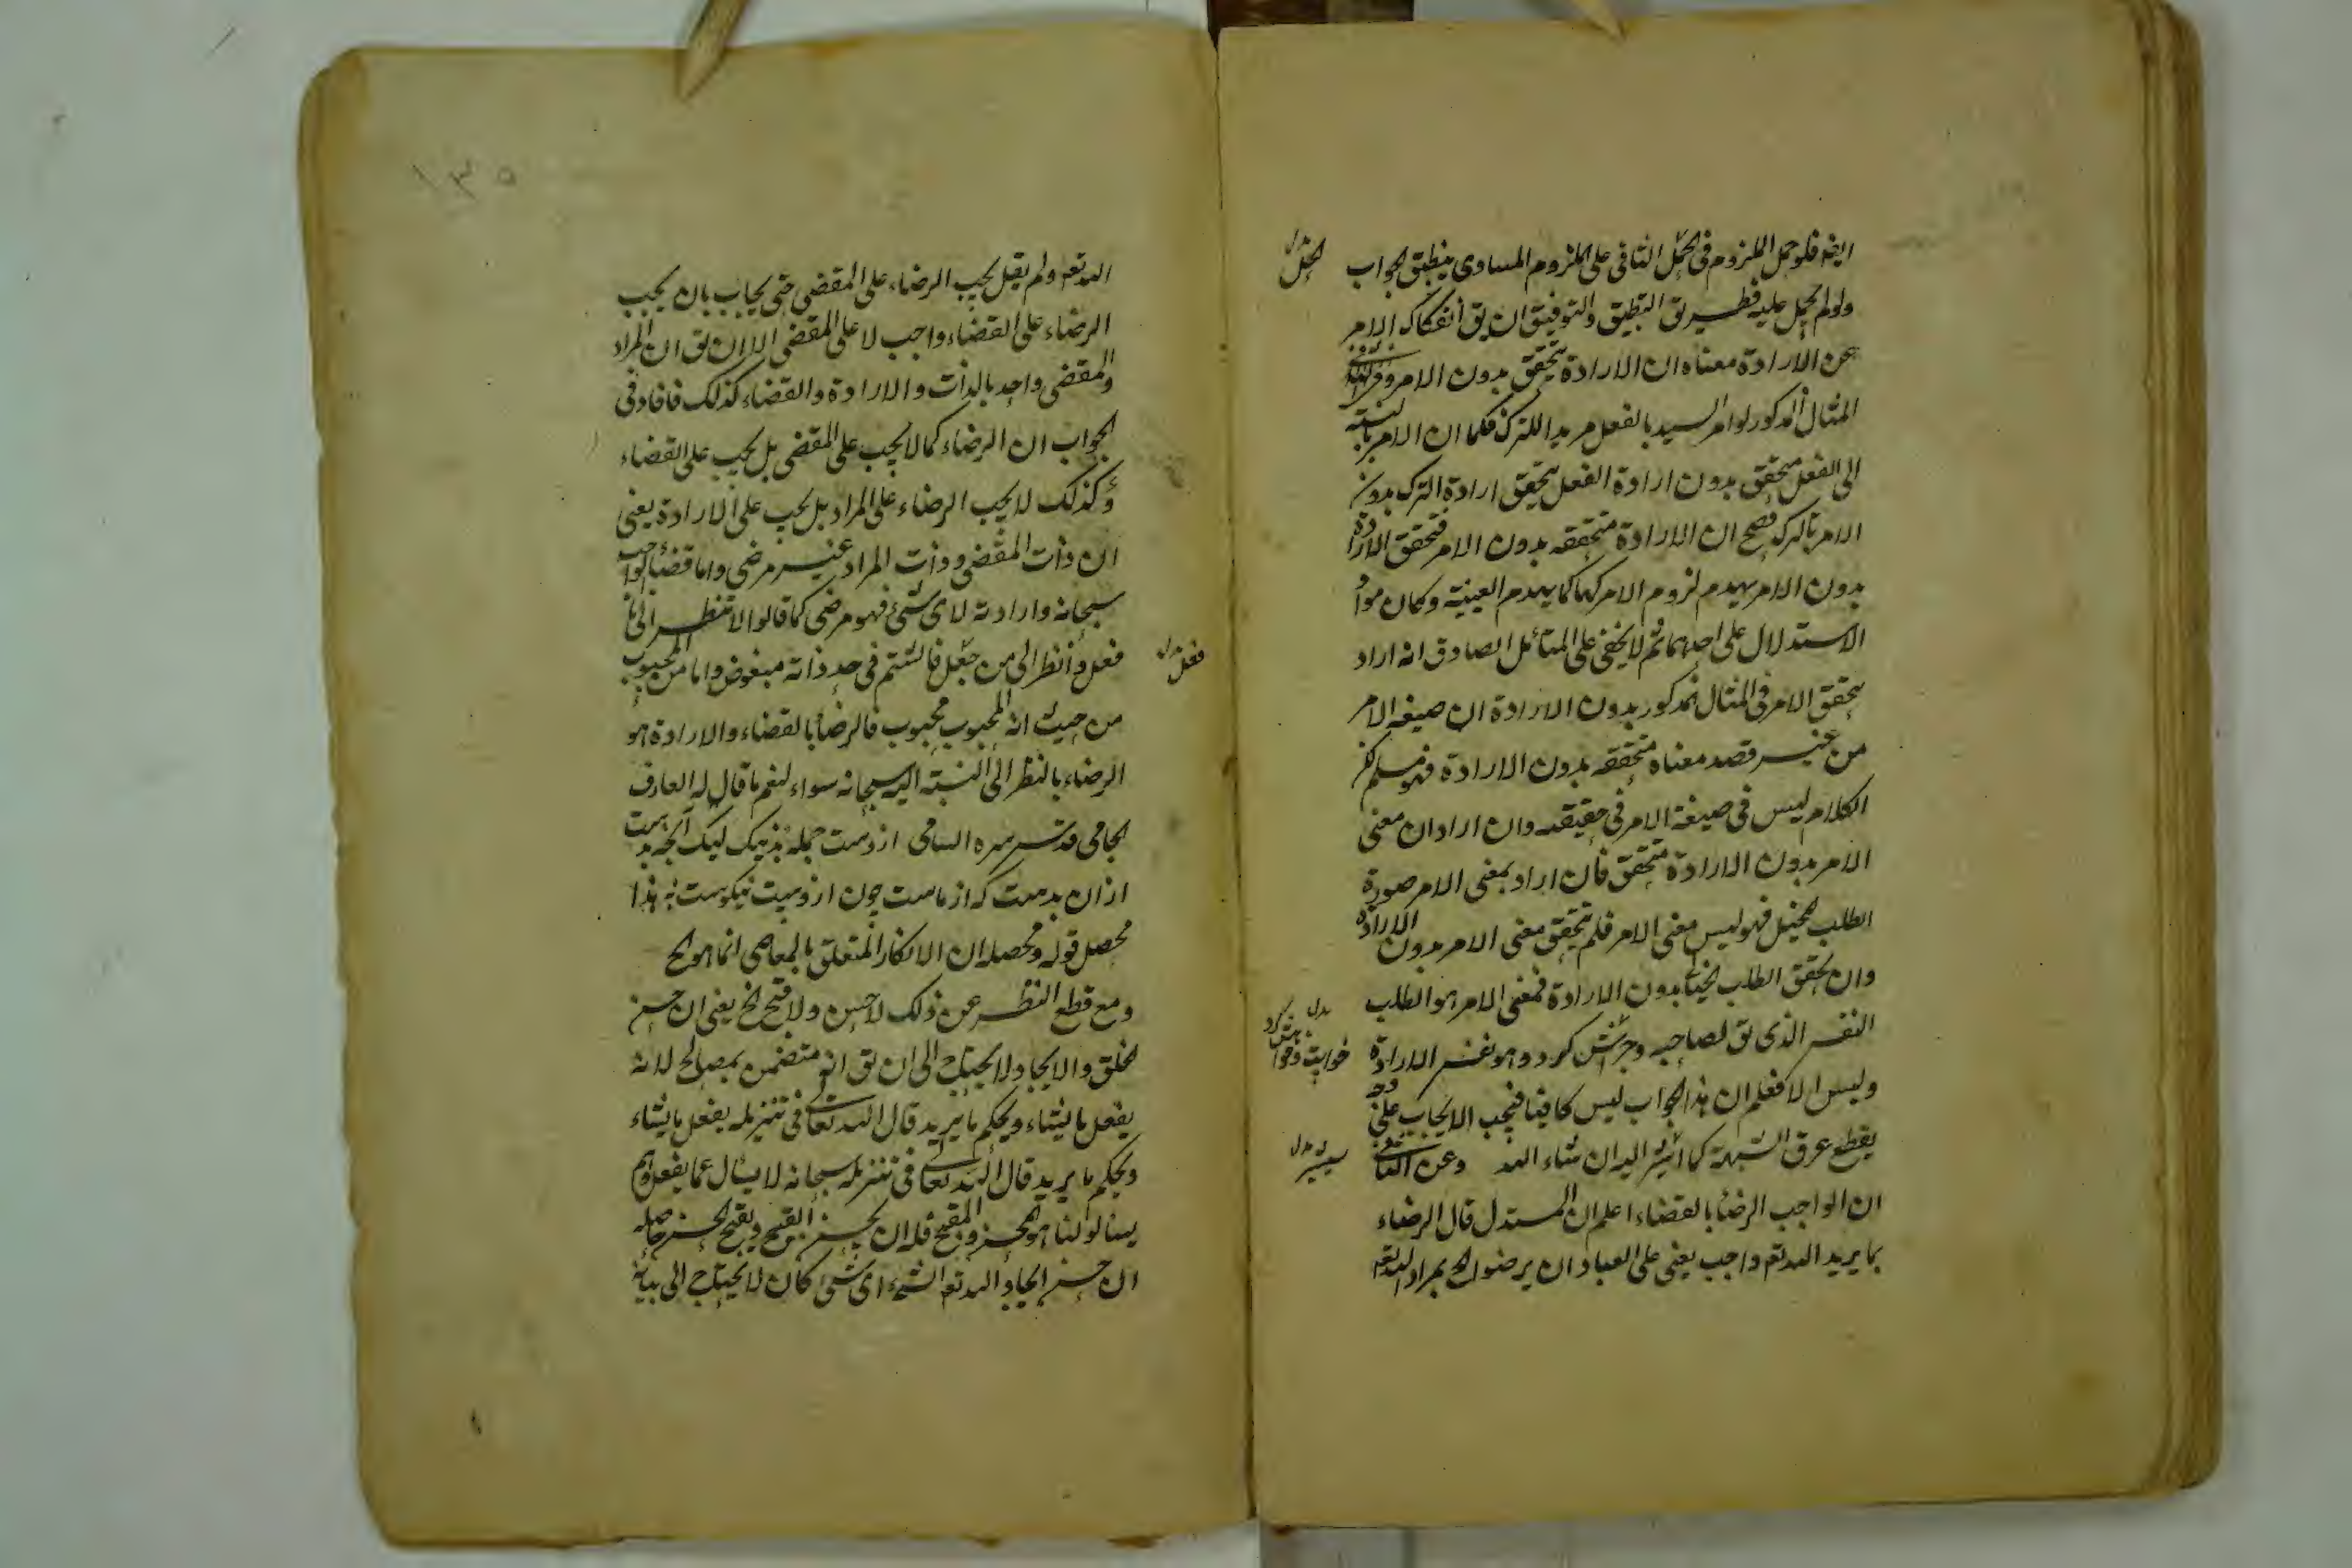 ايضه فلو حمل اللزوم فى الحمل الثانى على الملزوم المساوى ينطبق الجواب
ولو لم يحمل عليه فطريق التطبيق والتوفيق ان يق انفكاك الامر
عن الارادة معناه ان الارادة يتحقق بدون الامر وفى
المثال المذكور لو امر السيد بالفعل مريدا للترك فكما ان الامر بالنسبة
الى الفعل متحقق بدون ارادة الفعل يتحقق ارادة الترك بدون
الامر بالترك فصح ان الارادة متحققه بدون الامر فتحقق الارادة
بدون الامر يهدم لزوم الامر لها كما يهدم العينية وكان
الاستدلال على احدهما ثم لا يخفى على المتأمل الصادق انه اراد
بتحقق الامر فى المثال المذكور بدون الارادة ان صيغه الامر
من غير قصد معناه متحققه بدون الارادة فهو مسلم لكن
الكلام ليس فى صيغة الامر فى حقيقته وان اراد ان معنى
الامر بدون الارادة متحقق فان اراد بمعنى الامر صورة
الطلب المخيل فهو ليس معنى الامر فلم يتحقق معنى الامر بدون الارادة
وان تحقق الطلب بدون الارادة فمعنى الامر هو الطلب
النفسى الذى يق لصاحبه كرد وهو نفس الارادة
وليس الا فعلم ان هذا الجواب ليس كافيا فيجب الايجاب على وجه
يقطع عرق الشبهة كما اشير اليه ان شاء الله وعن الثانى
ان الواجب الرضا بالقضاء اعلم ان المستدل قال الرضاء
بما يريد الله تعه واجب يعنى على العباد ان يرضوا بمراد الله تعه
الحمل
بدل
سيشير بدل
١٣٥
الله تعه ولم يقل يجب الرضاء على المقضى حتى يجاب بان يجب
الرضاء على القضاء واجب لا على المقضى الا ان يق ان المراد
والمقضى واحد بالذات والارادة والقضاء كذلك فافاد فى
الجواب ان الرضاء كما لا يجب على المقضى بل يجب على القضاء
وكذلك لا يجب الرضاء على المراد بل يجب على الارادة يعنى
ان ذات المقضى وذات المراد غير مرضى واما قضاء الواجب
سبحانه وارادته لاى شئ فهو مرضى كما قالوا لا تنظر الى ما
فعل وانظر الى من جعل فالشتم فى حد ذاته مبغوض واما من المحبوب
من حيث انه المحبوب محبوب فالرضا بالقضاء والارادة هو
الرضاء بالنظر الى النسبة اليه سبحانه سواء لنعم ما قال له العارف
الجامى قدس سره السامى از وست جمله نزديك ليك آنچه بدست
از ان بدست كه از ماست چون از وست نيكوست به هذا
محصل قوله ومحصله ان الانكار المتعلق بالمعاصى انما هو الخ
ومع قطع النظر عن ذلك لا حسن ولا قبح الخ يعنى ان حسن
الخلق والايجاد لا يحتاج الى ان يق انه متضمن بمصالح لانه
يفعل ما يشاء ويحكم ما يريد قال الله تعالى فى تنزيله يفعل ما يشاء
ويحكم ما يريد قال الله تعالى فى تنزيله سبحانه لا يسئال عما يفعل وهم
يسئالون لنا هو المحسن والمقبح فله ان يحسن القبيح ويقبح الحسن حاصله
ان حسن ايجاد الله تعه الشىء اى شئ كان لا يحتاج الى بيانه
فعل بدل